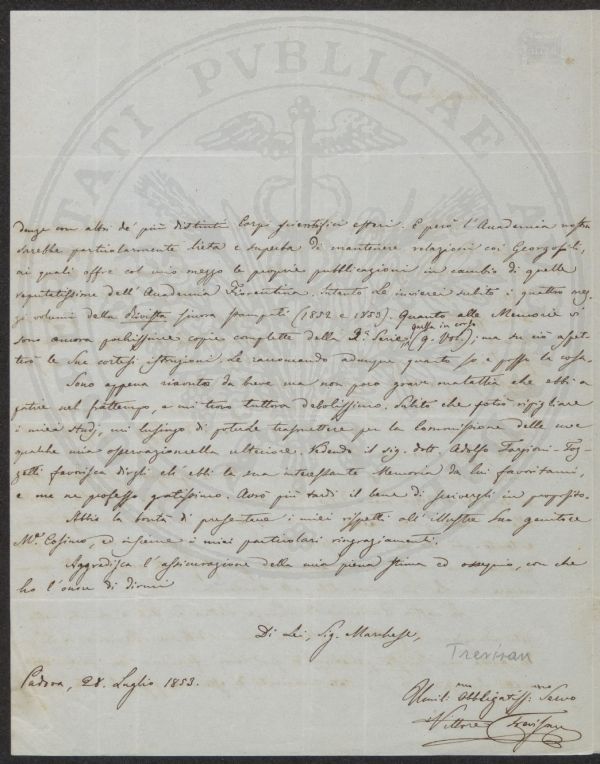 TATI PVBLICAE
denze con altri de' più distinti Corpi scientifici esteri. E però l'Accademia nostra
sarebbe particolarmente lieta e superba di mantenere relazioni coi Georgofili,
ai quali offre col mio mezzo le proprie pubblicazioni in cambio di quelle
reputatissime dell'Accademia Fiorentina. Intanto Le invierei subito i quattro mez-
zi volumi della Rivista finora stampati (1852 e 1853). Quanto alle Memorie vi
sono ancora pochissime copie complete della 2.a Serie (9. Vol.); ma su ciò aspet-
terò le Sue cortesi istruzioni. Le raccomando adunque quanto so e posso la cosa.
Sono appena riavuto da breve ma non poco grave malattia che ebbi a
patire nel frattempo, e mi trovo tuttora debolissimo. Subito che potrò ripigliare
i miei studj, mi lusingo di poterle trasmettere per la Commissione delle uve
qualche mia osservazioncella ulteriore. Vedendo il sig. dott. Adolfo Targioni-Toz-
zetti favorisca dirgli ch'ebbi la sua interessante Memoria da lui favoritami,
e me ne professo gratissimo. Avrò più tardi il bene di scrivergli in proposito.
Abbia la bontà di presentare i miei rispetti all'illustre Suo genitore
M.se Cosimo, ed insieme i miei particolari ringraziamenti.
Aggradisca l'assicurazione della mia piena stima ed ossequio, con che
ho l'onore di dirmi
Di Lei, Sig. Marchese,
Trevisan
Padova, 28. Luglio 1853.
Umil.mo Obbligatiss.mo Servo
Vittore Trevisan